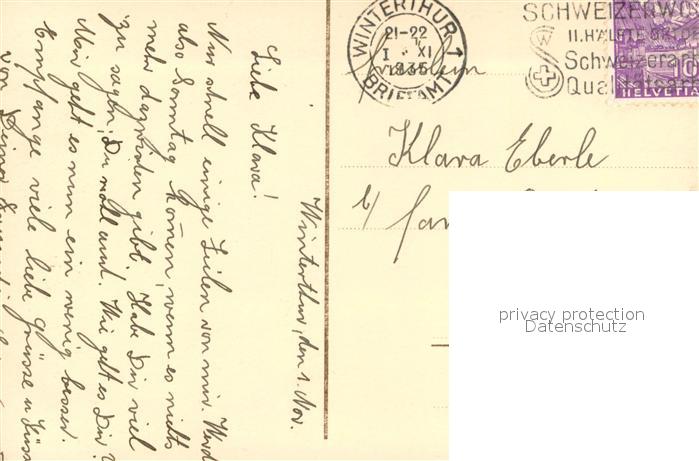 Winterthur, den 1. Nov.
Liebe Klara!
Nur schnell einige Zeilen von mir. Werd
also Sonntag kommen, wenn es nichts
mehr dazwischen gibt. Habe Dir viel
zu sagen, Du wohl auch. Wie geht es Dir?
Mir geht es nun ein wenig besser.
Empfange viele liebe Grüsse u Küsse
von Deiner
WINTERTHUR 1
21-22
I XI
1935
BRIEFAMT
SCHWEIZERWO
II. HÄLFTE OKTOBE
Schweizerar
Qualitätsar
10
HELVETIA
Fräulein
Klara Eberle
b/
privacy protection
Datenschutz